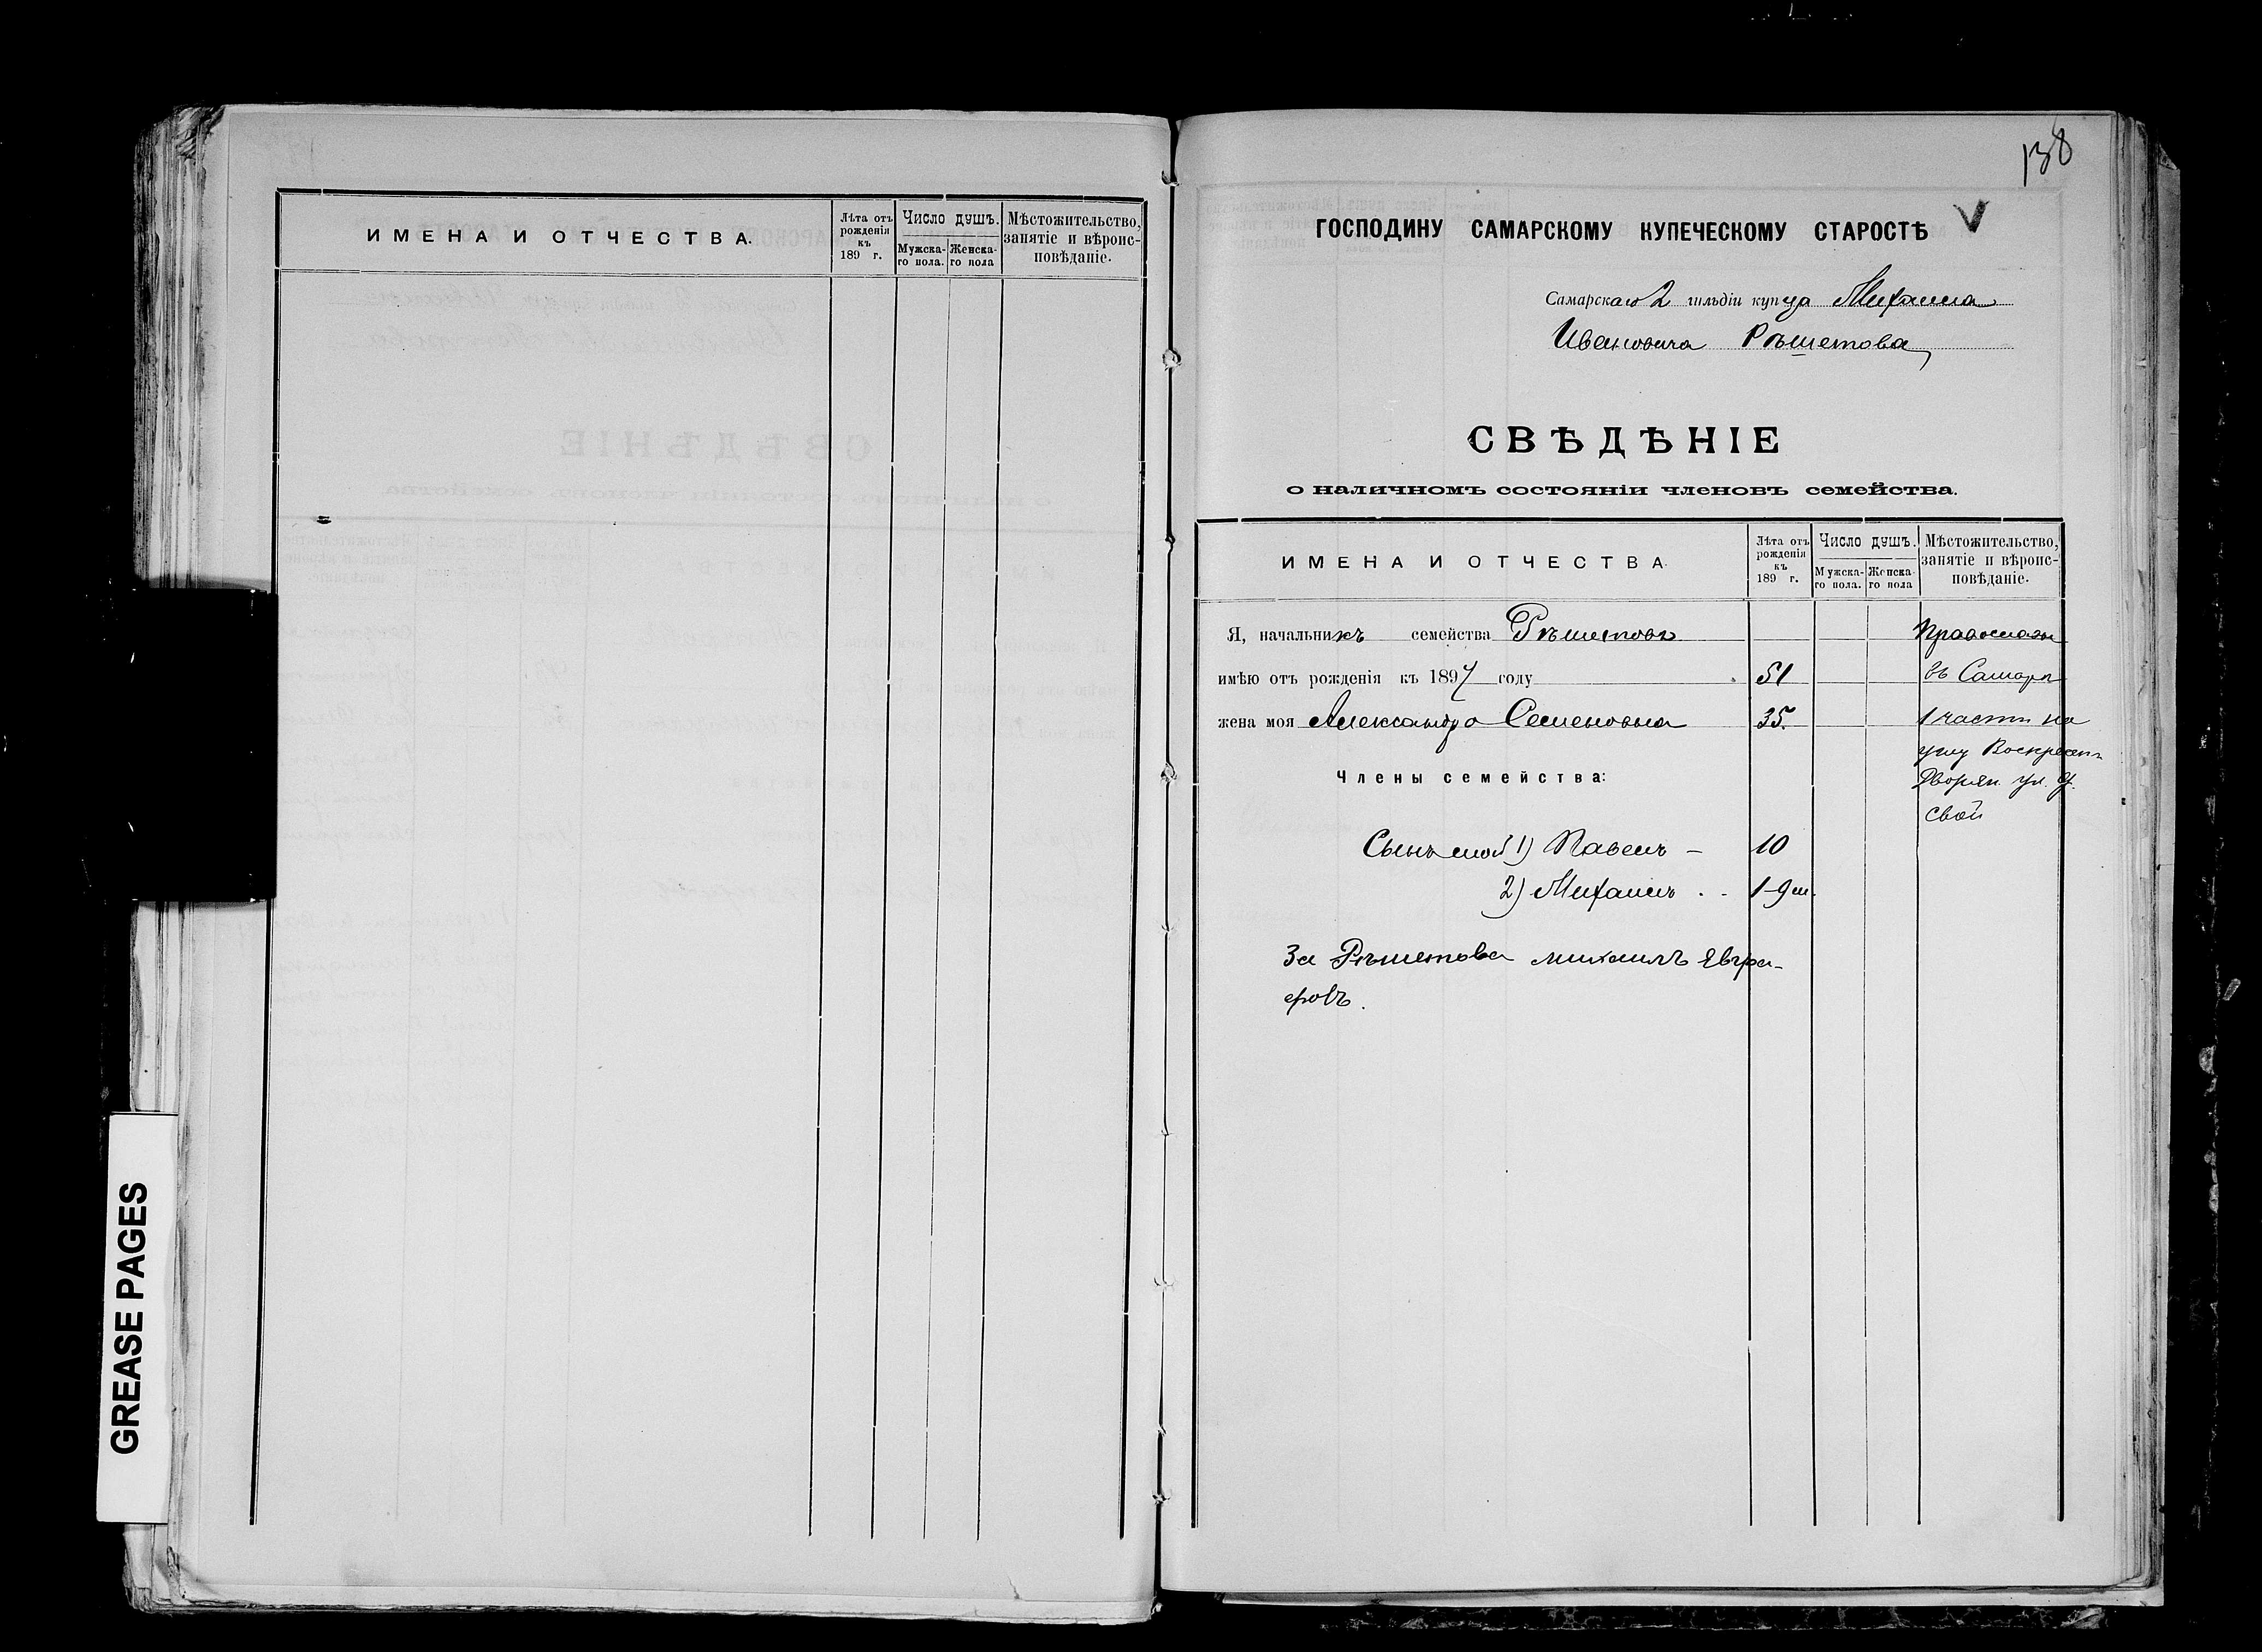 ИМЕНА И ОТЧЕСТВА.
Лѣта отъ рожденія къ 189 г.
Число душъ.
Мужска-го пола.
Женска-го пола
Мѣстожительство, занятіе и вѣроис-повѣданіе.
138
ГОСПОДИНУ САМАРСКОМУ КУПЕЧЕСКОМУ СТАРОСТѢ
Самарскаго 2 гильдіи купца Михаила
Ивановича Рѣшетова
СВѢДѢНІЕ
о наличномъ состояніи членовъ семейства.
ИМЕНА И ОТЧЕСТВА.
Лѣта отъ рожденія къ 189 г.
Число душъ.
Мужска-го пола.
Женска-го пола
Мѣстожительство, занятіе и вѣроис-повѣданіе.
Я, начальникъ семейства Рѣшетовъ Православн
имѣю отъ рожденія къ 1897 году 51 въ Самарѣ
жена моя Александра Семеновна 35. 1 части на
углу Воскресен
Члены семейства: Дворян. ул. д.
свой
Сынъ мой 1) Павелъ – 10
2) Михаилъ . . 1–9 м.
За Рѣшетова Михаилъ Евгра-
фовъ.
GREASE PAGES